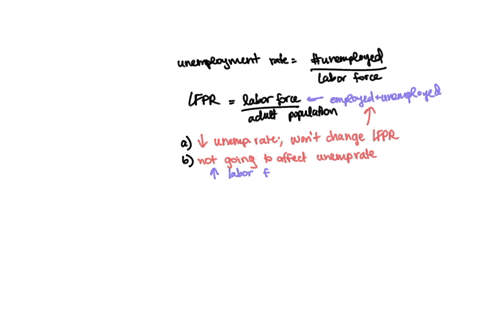 unemployment rate = #unemployed
labor force
LFPR = labor force ← employed+unemployed
adult population
a) ↓ unemp rate, won't change LFPR
b) not going to affect unemp rate
↑ labor f